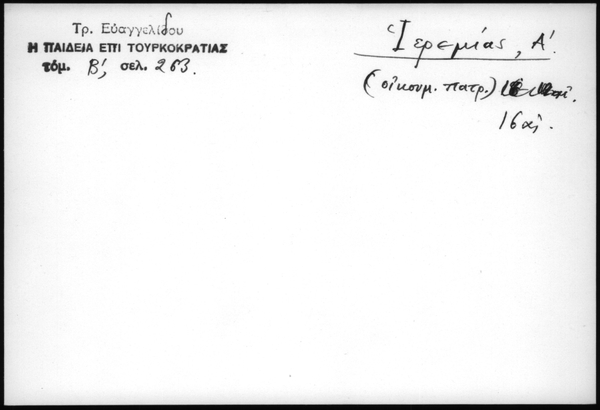 Τρ. Εὐαγγελίδου
Η ΠΑΙΔΕΙΑ ΕΠΙ ΤΟΥΡΚΟΚΡΑΤΙΑΣ
τόμ. Β', σελ. 263.
Ἱερεμίας, Α'.
(οἰκουμ. πατρ.)
16 αἰ.